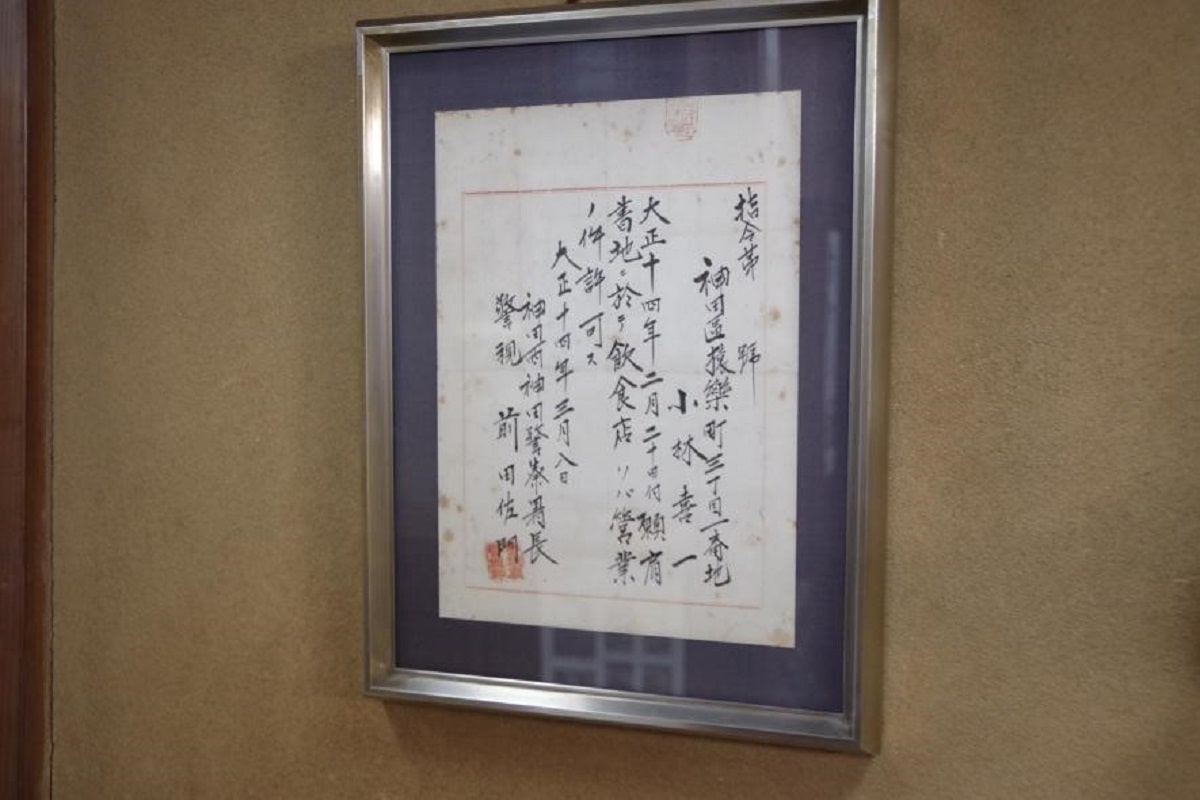 指令第 號
神田區猿樂町三丁目一番地
小林喜一
大正十四年二月二十日付願有
書地ニ於テ飲食店ソバ營業
ノ件許可ス
大正十四年三月八日
神田西神田警察署長
警視 前田佐門